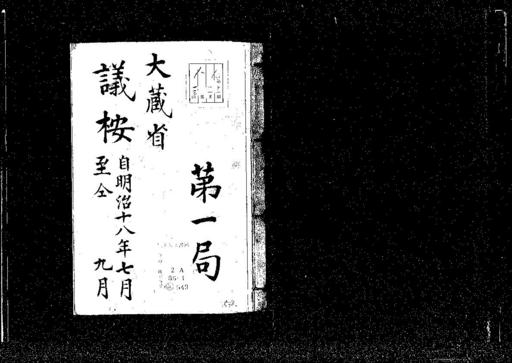 第一局
大蔵省
議桉
自明治十八年七月
至仝九月
2 A
35-1
543